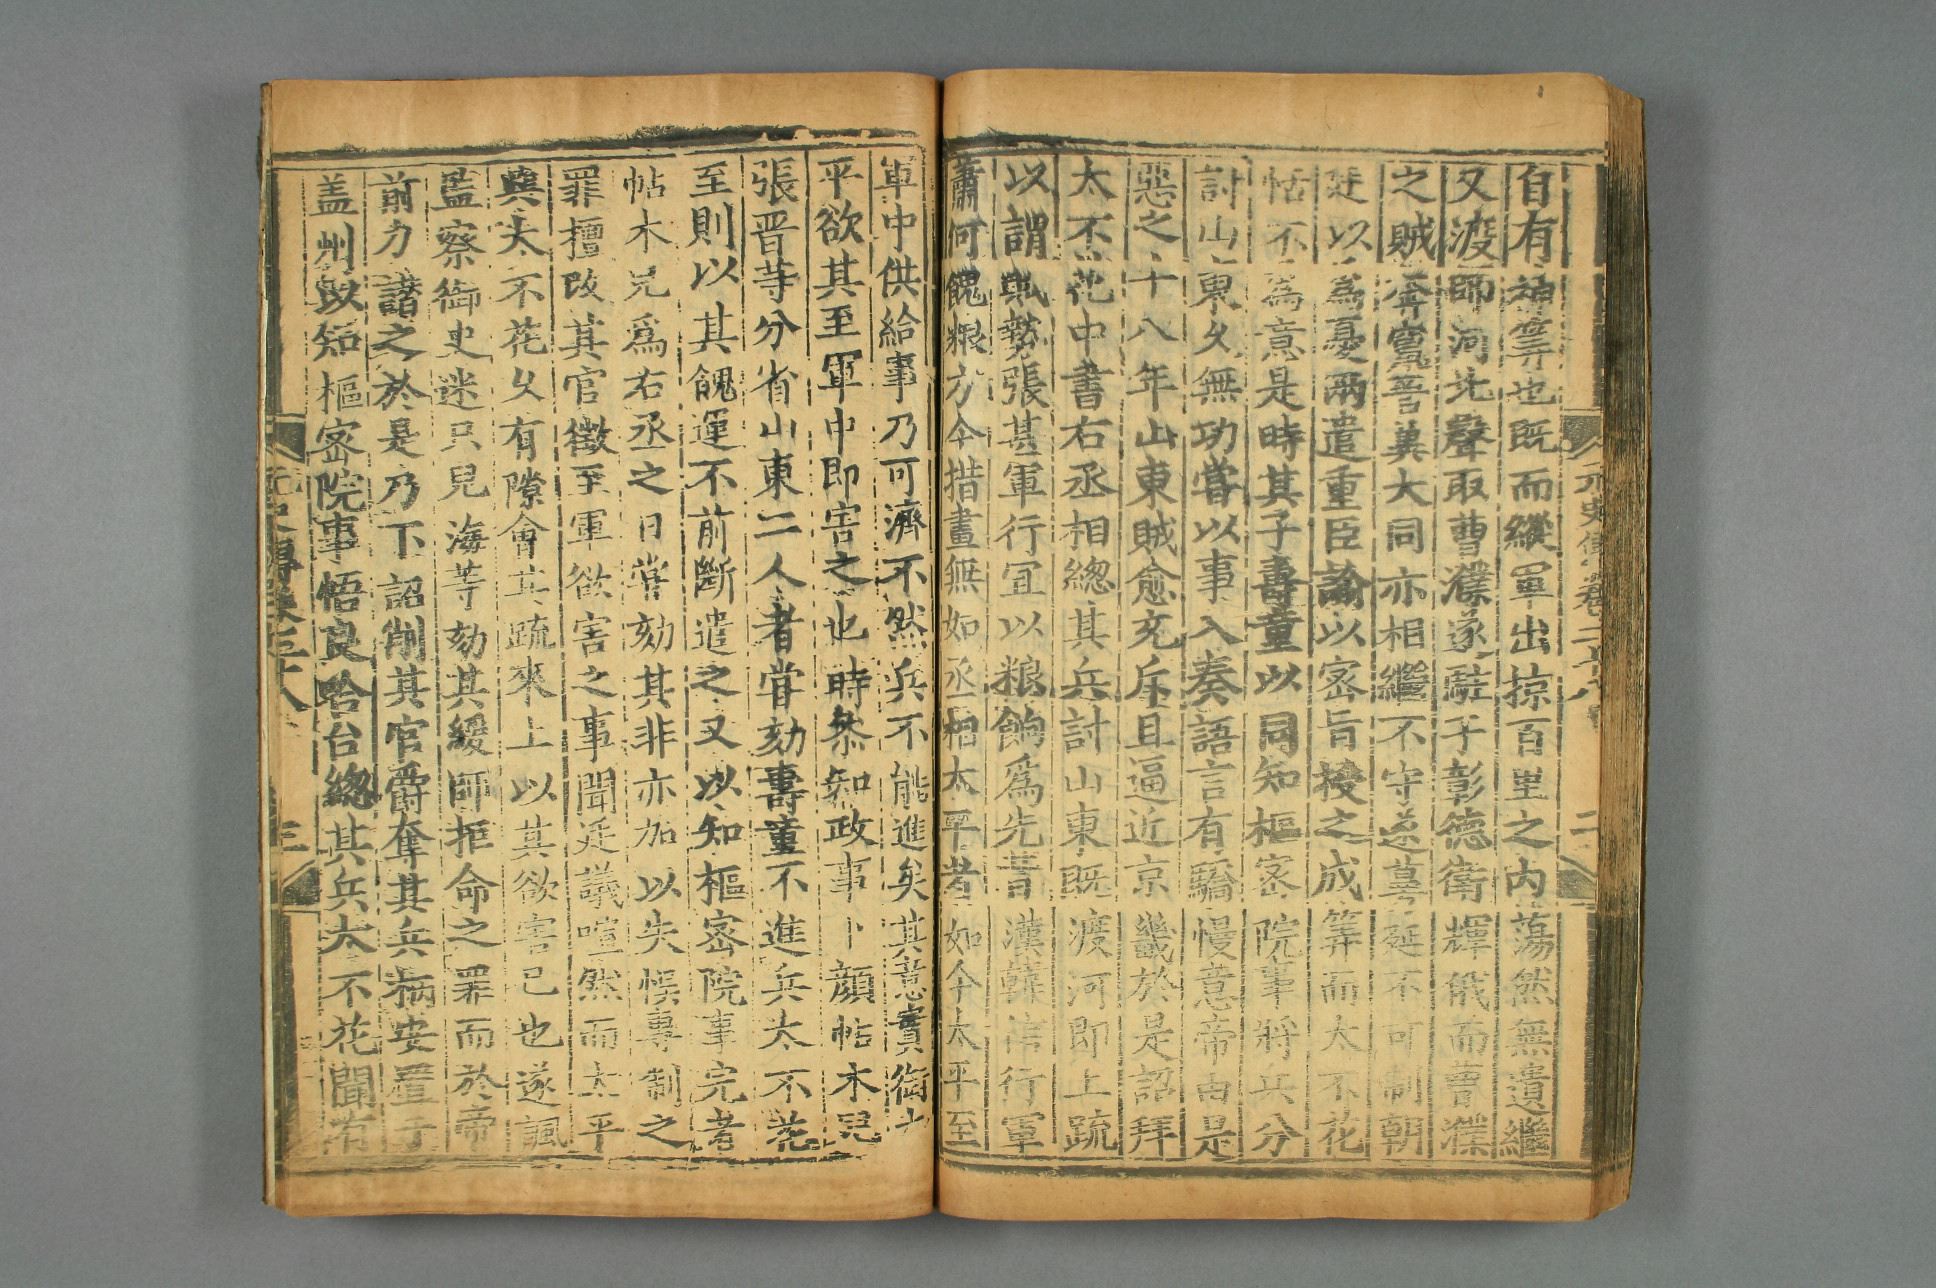 自有神筭也既而縱軍出掠百里之内蕩然無遺繼
又渡師河北聲取曹濮遂駐于彰德衛輝俄而曹濮
之賊奔竄晉冀大同亦相繼不守遂蔓延不可制朝
廷以爲憂兩遣重臣諭以密旨授之成筭而太不花
恬不爲意是時其子壽童以同知樞密院事將兵分
討山東久無功嘗以事入奏語言有驕慢意帝由是
惡之十八年山東賊愈充斥且逼近京畿於是詔拜
太不花中書右丞相總其兵討山東既渡河即上疏
以謂賊勢張甚軍行宜以粮餉爲先昔漢韓信行軍
蕭何餽粮方今措畫無如丞相太平者如令太平至
軍中供給事乃可濟不然兵不能進矣其意實銜太
平欲其至軍中即害之也時叅知政事卜顔帖木兒
張晋等分省山東二人者嘗劾壽童不進兵太不花
至則以其餽運不前斷遣之又以知樞密院事完者
帖木兒爲右丞之日嘗劾其非亦加以失悞專制之
罪擅改其官徵至軍欲害之事聞廷議喧然而太平
與太不花久有隙會其疏來上以其欲害已也遂諷
監察御史迷只兒海等劾其緩師拒命之罪而於帝
前力譖之於是乃下詔削其官爵奪其兵柄安置于
盖州以知樞密院事悟良哈台總其兵太不花聞有
元史傳卷二十八
二
三